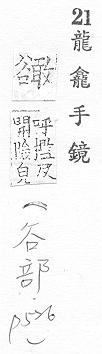 21 龍龕手鏡
豃
呼檻反
開險皃
(谷部, p526